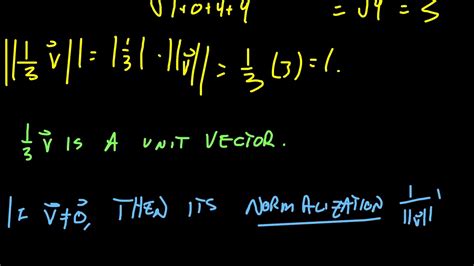 √1+0+4+4 = √9 = 3
||1/3 v⃗|| = |1/3| · ||v⃗|| = 1/3 (3) = 1.
1/3 v⃗ IS A UNIT VECTOR.
IF v⃗ ≠ 0⃗, THEN ITS NORMALIZATION 1/||v⃗||